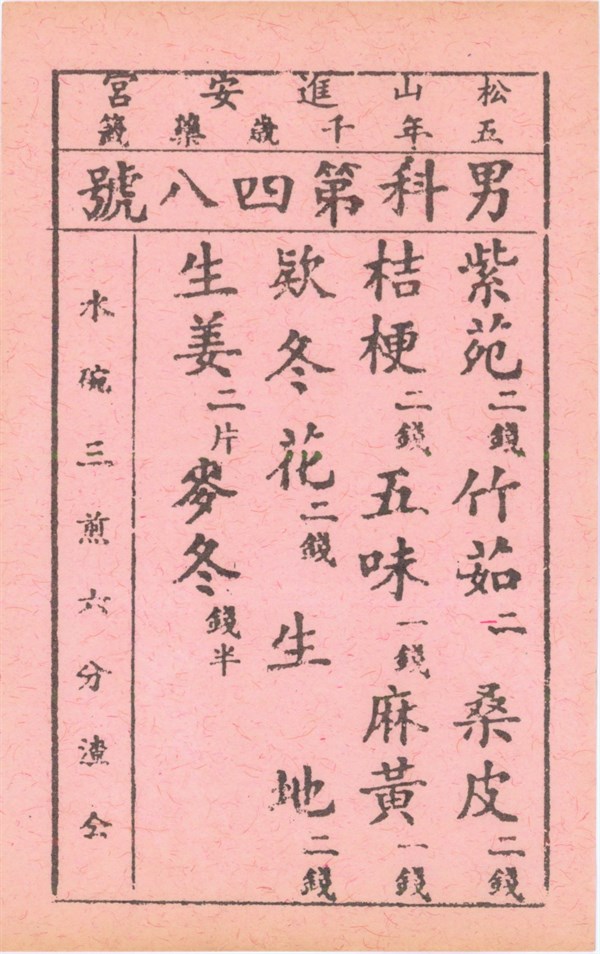 松山進安宮
五年千歲藥籤
男科第四八號
紫苑二錢 竹茹二 桑皮二錢
桔梗二錢 五味一錢 麻黃一錢
欵冬花二錢 生地二錢
生姜二片 麥冬錢半
水碗三煎六分渣仝